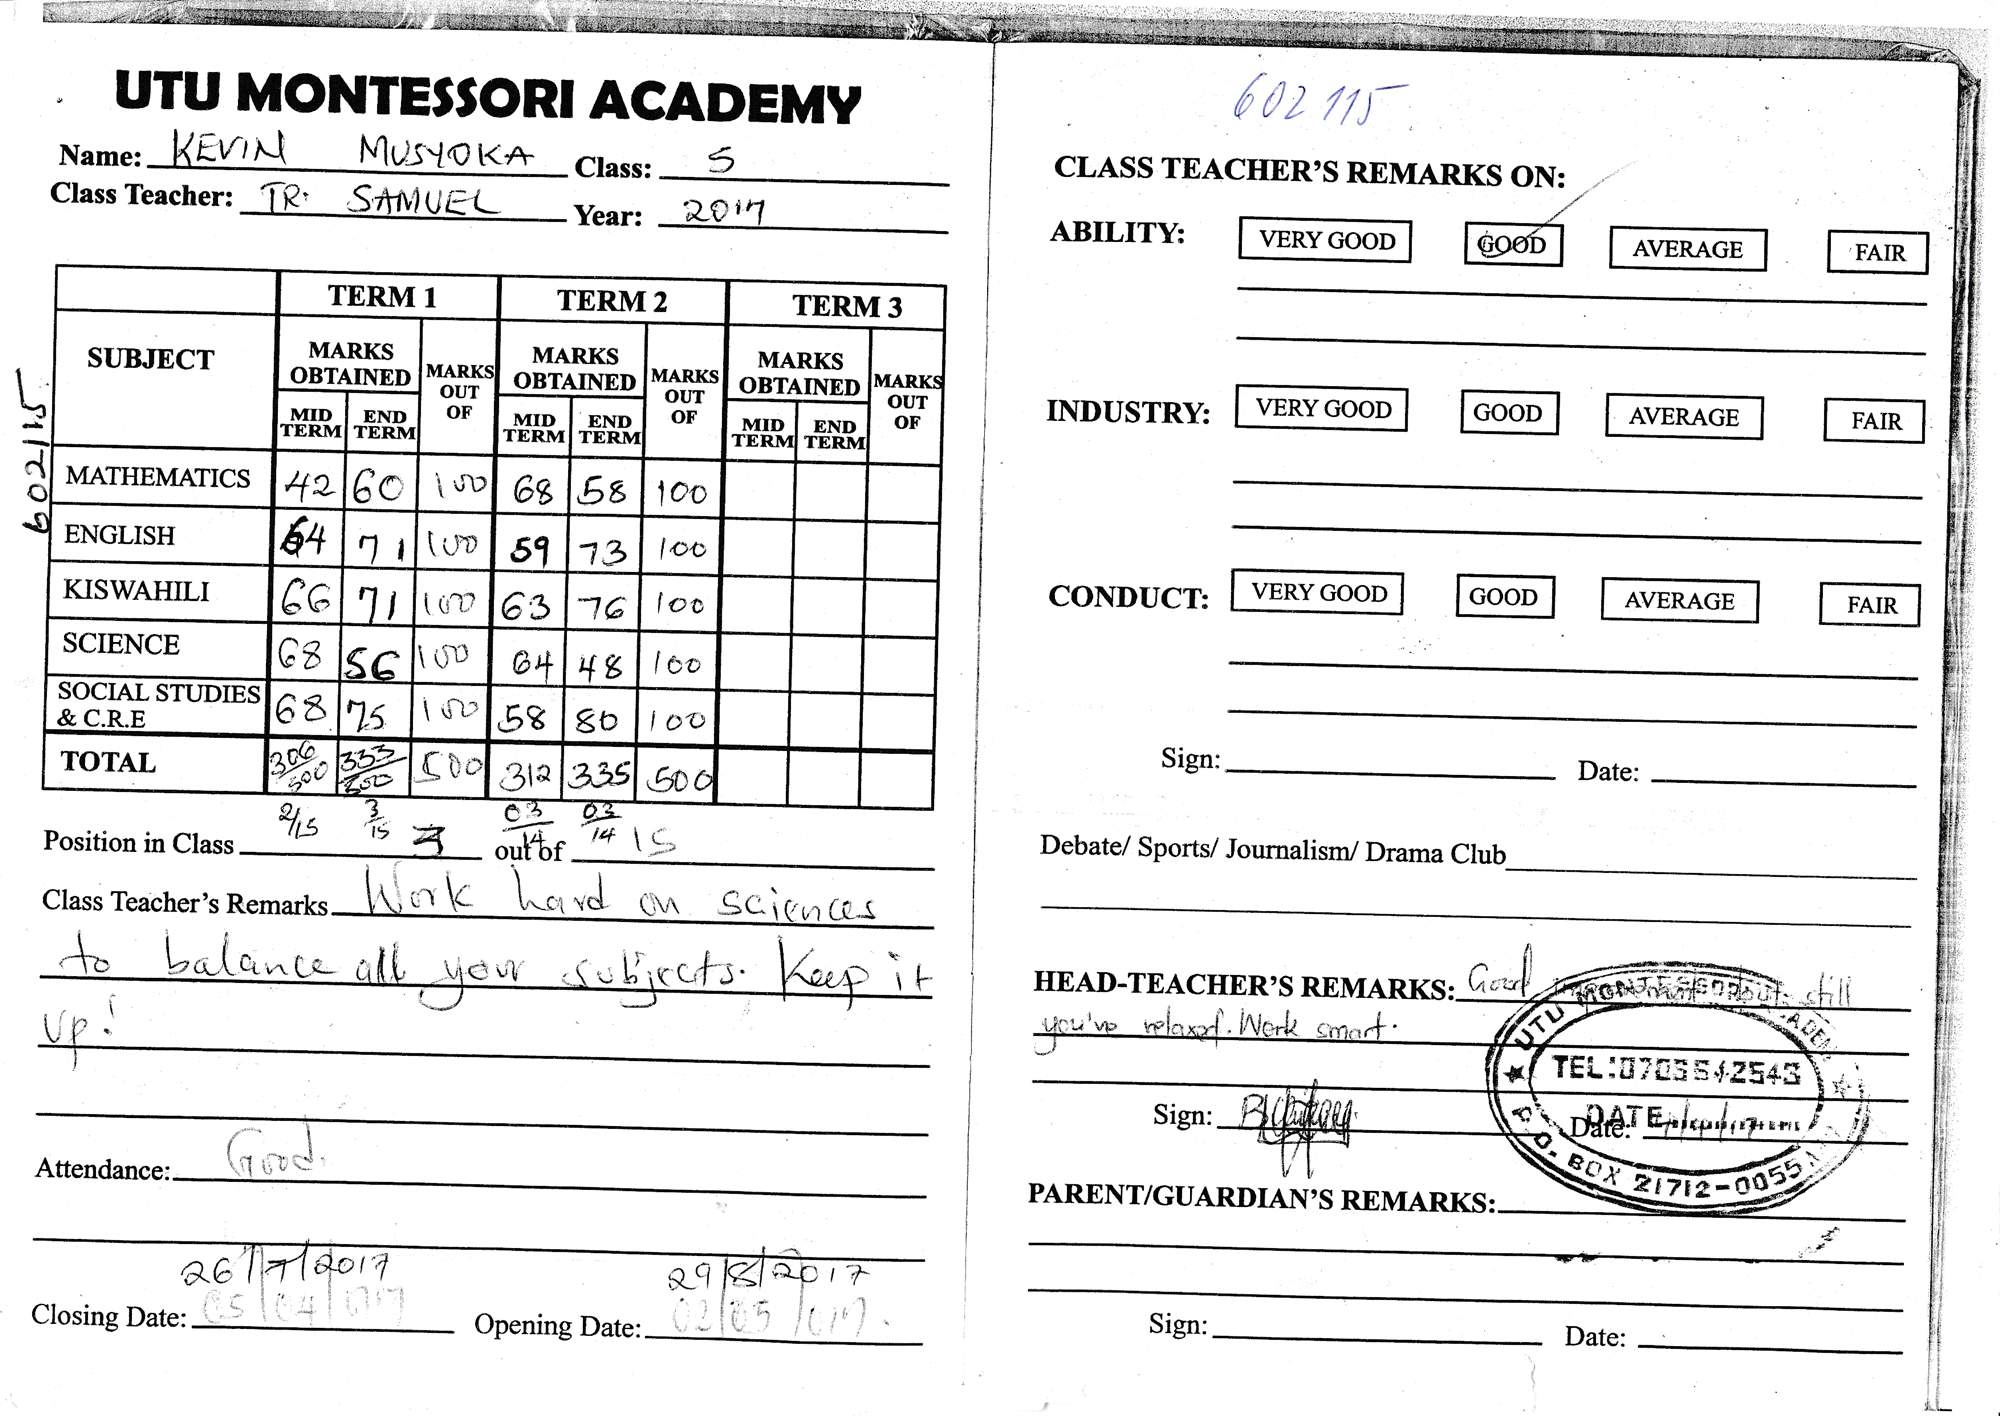 UTU MONTESSORI ACADEMY
Name: KEVIN MUSYOKA Class: 5
Class Teacher: TR. SAMUEL Year: 2017
602115
TERM 1 TERM 2 TERM 3
SUBJECT MARKS OBTAINED MARKS OUT OF MARKS OBTAINED MARKS OUT OF MARKS OBTAINED MARKS OUT OF
MID TERM END TERM MID TERM END TERM MID TERM END TERM
MATHEMATICS 42 60 100 68 58 100
ENGLISH 64 71 100 59 73 100
KISWAHILI 66 71 100 63 76 100
SCIENCE 68 56 100 64 48 100
SOCIAL STUDIES & C.R.E 68 75 100 58 80 100
TOTAL 306/500 333/500 500 312 335 500
2/15 3/15 03/14 03/14
Position in Class 3 out of 15
Class Teacher's Remarks Work hard on sciences
to balance all your subjects. Keep it
up!
Attendance: Good.
26/7/2017 29/8/2017
Closing Date: 05/04/017 Opening Date: 02/05/017.
602115
CLASS TEACHER'S REMARKS ON:
ABILITY: VERY GOOD GOOD AVERAGE FAIR
INDUSTRY: VERY GOOD GOOD AVERAGE FAIR
CONDUCT: VERY GOOD GOOD AVERAGE FAIR
Sign: Date:
Debate/ Sports/ Journalism/ Drama Club
HEAD-TEACHER'S REMARKS: Good improvement but still
you've relaxed. Work smart.
Sign: Date:
UTU MONTESSORI ACADEMY
TEL:0705542543
DATE
P.O. BOX 21712-0055
PARENT/GUARDIAN'S REMARKS:
Sign: Date: